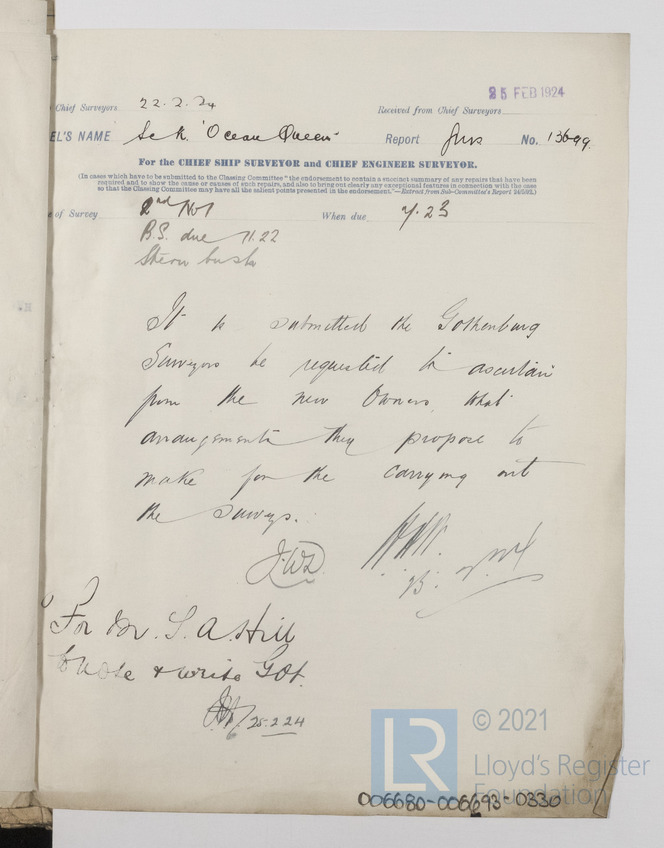 25 FEB 1924
Chief Surveyors 22.2.24 Received from Chief Surveyors
EL'S NAME Sc K. 'Ocean Queen' Report No. 13699
For the CHIEF SHIP SURVEYOR and CHIEF ENGINEER SURVEYOR.
(In cases which have to be submitted to the Classing Committee "the endorsement to contain a succinct summary of any repairs that have been
required and to show the cause or causes of such repairs, and also to bring out clearly any exceptional features in connection with the case
so that the Classing Committee may have all the salient points presented in the endorsement."—Extract from Sub-Committee's Report
e of Survey 2nd No1 When due 7.23
B.S. due 11.22
Stern bush
It is submitted the Gothenburg
Surveyors be requested to ascertain
from the new Owners, what
arrangements they propose to
make for the carrying out
the surveys.
J.W.D.
For Mr. S. A. Hill
to note & write Got.
25.2.24
LR
© 2021
Lloyd's Register
Foundation
006680-006693-0330